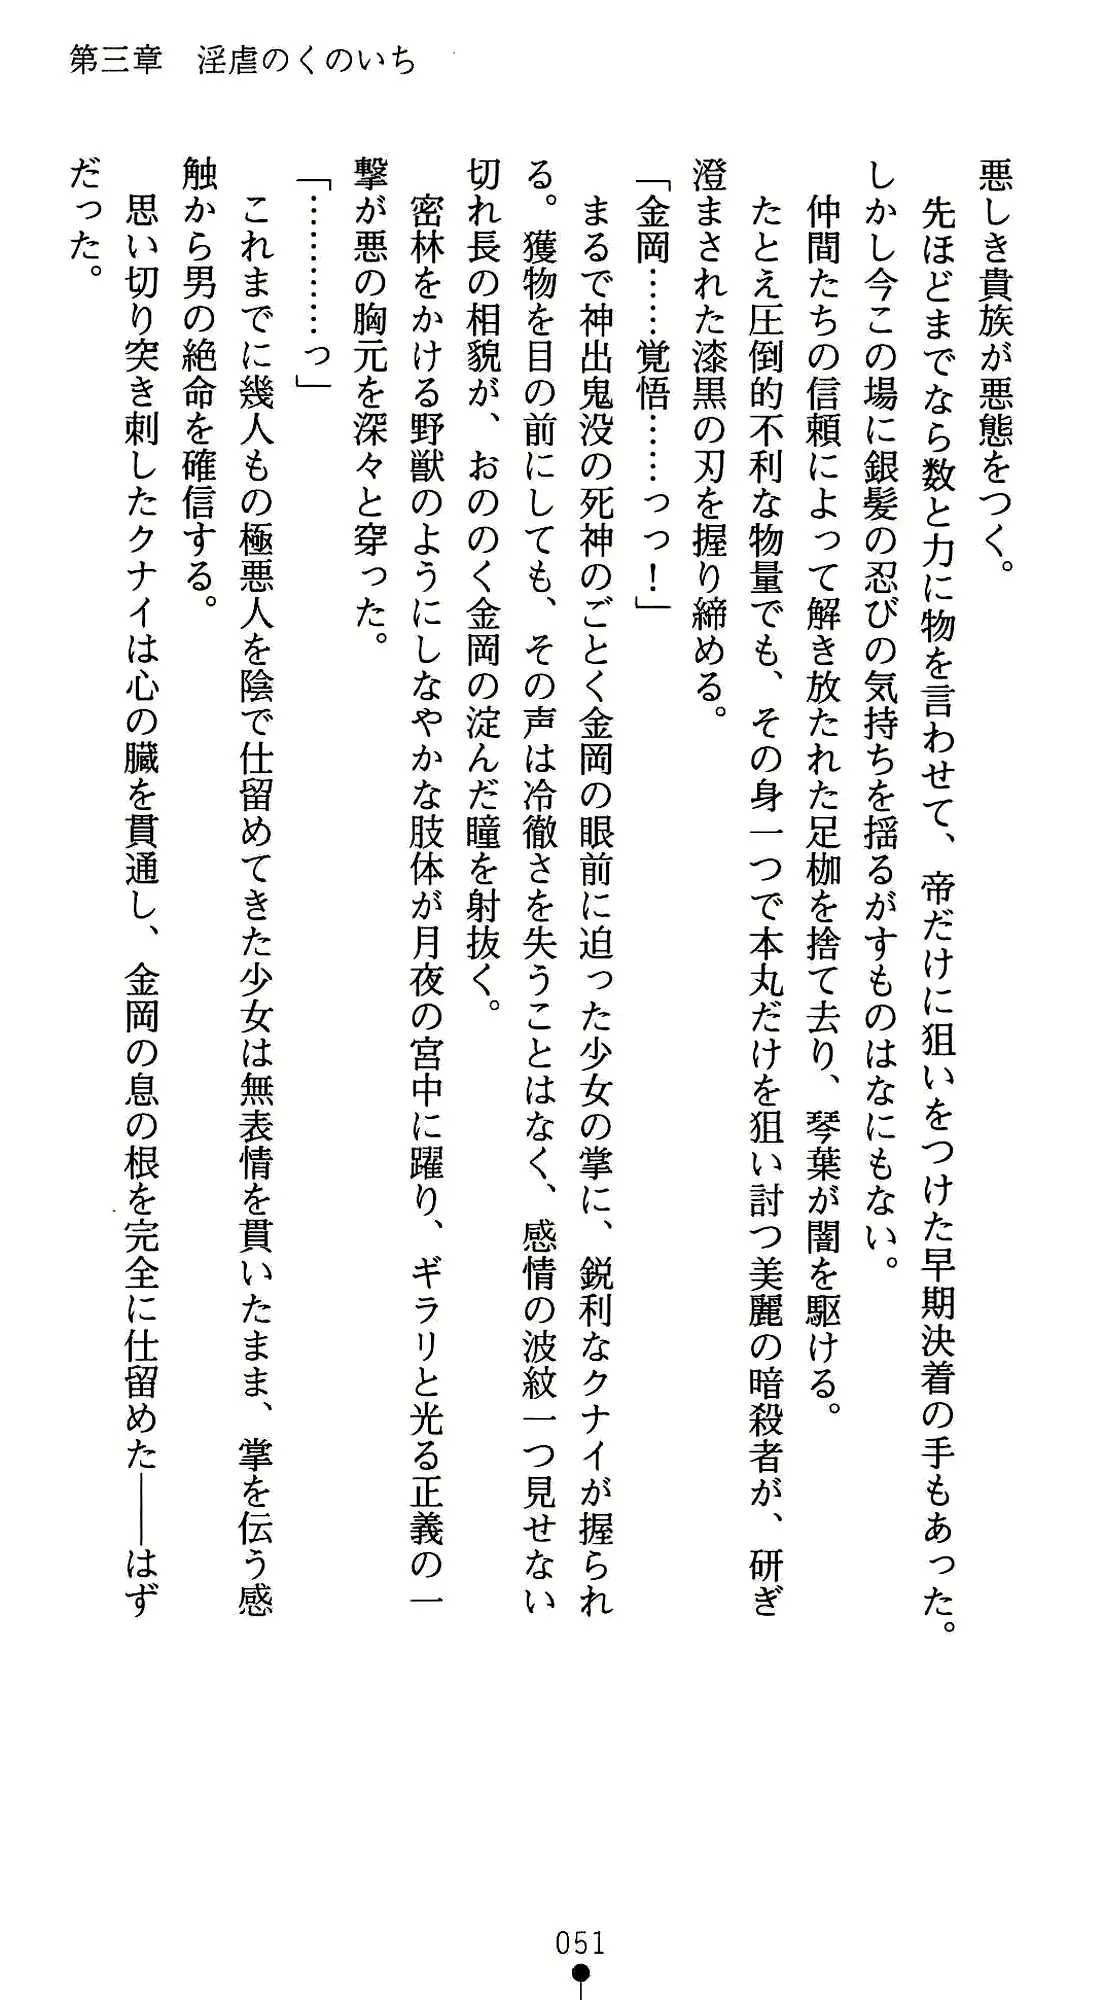 第三章　淫虐のくのいち
悪しき貴族が悪態をつく。
　先ほどまでなら数と力に物を言わせて、帝だけに狙いをつけた早期決着の手もあった。
しかし今この場に銀髪の忍びの気持ちを揺るがすものはなにもない。
　仲間たちの信頼によって解き放たれた足枷を捨て去り、琴葉が闇を駆ける。
　たとえ圧倒的不利な物量でも、その身一つで本丸だけを狙い討つ美麗の暗殺者が、研ぎ
澄まされた漆黒の刃を握り締める。
「金岡……覚悟……っっ！」
　まるで神出鬼没の死神のごとく金岡の眼前に迫った少女の掌に、鋭利なクナイが握られ
る。獲物を目の前にしても、その声は冷徹さを失うことはなく、感情の波紋一つ見せない
切れ長の相貌が、おののく金岡の淀んだ瞳を射抜く。
　密林をかける野獣のようにしなやかな肢体が月夜の宮中に躍り、ギラリと光る正義の一
撃が悪の胸元を深々と穿った。
「…………っ」
　これまでに幾人もの極悪人を陰で仕留めてきた少女は無表情を貫いたまま、掌を伝う感
触から男の絶命を確信する。
　思い切り突き刺したクナイは心の臓を貫通し、金岡の息の根を完全に仕留めた――はず
だった。
051